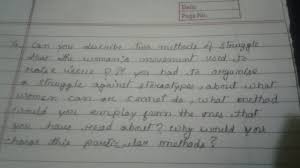 Date
Page No.
Can you describe two methods of struggle
that the women's movement used to
raise issue ? If you had to organise
a struggle against stereotypes, about what
women can or cannot do, what method
would you employ from the ones that
you have read about? Why would you
choose this particular methods?